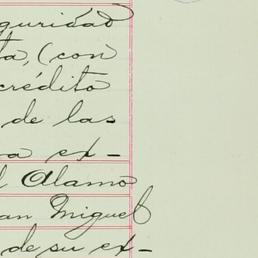 guridad
ta, (con
crédito
de las
a ex-
l Alamo
an Miguel
de su ex-